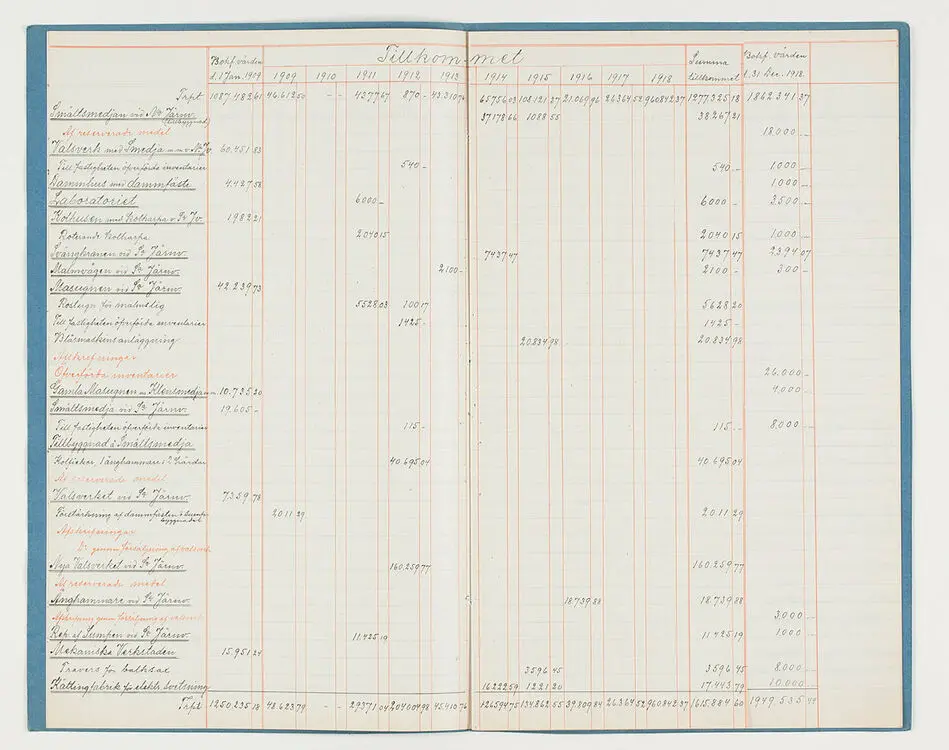 Bokf. värden Tillkommet Summa Bokf. värden
d. 1 Jan. 1909 1909 1910 1911 1912 1913 1914 1915 1916 1917 1918 tillkommet d. 31 Dec. 1918.
Trpt 1087.482 61 46.612 50 - - 4377 67 870 - 43.310 76 6575 603 108.121 37 21.069 96 26364 52 960842 37 1277325 18 1862341 37
Smältsmedjan vid Na Järnv. 37178 66 1088 55 38267 21
(tillbyggnad)
Af reserverade medel 18.000 -
Valsverk med Smedja m.m. v. Na Jv. 60.451 83
Till fastigheten öfverförda inventarier 540 - 540 - 1.000 -
Dammhus med dammfäste 4.427 58 1.000 -
Laboratoriet 6000 - 6000 - 3.500 -
Kolhusen med Kolharpa v. Sa Jv. 1.982 21
Roterande Kolharpa 2040 15 2040 15 1.000 -
Svängkranen vid Sa Järnv. 7437 47 7437 47 2.394 07
Malmvågen vid Sa Järnv. 2100 - 2100 - 300 -
Masugnen vid Sa Järnv. 42.239 73
Rostugn för malmslig 5528 03 100 17 5628 20
Till fastigheten öfverförda inventarier 1425 - 1425 -
Blåsmaskinsanläggning 20.834 98 20.834 98
Afskrifningar
Öfverförda inventarier 26.000 -
Gamla Masugnen m. Klensmedja m.m. 10.735 20 4.000 -
Smältsmedja vid Sa Järnv. 19.605 -
Till fastigheten öfverförda inventarier 115 - 115 - 8.000 -
Tillbyggnad å Smältsmedja
Kolfickor, 1 ånghammare & 2 härdar 40.695 04 40.695 04
Af reserverade medel
Valsverket vid Sa Järnv. 7359 78
Förstärkning af dammfästen 2011 29 2011 29
Afskrifningar
Do genom försäljning af valsverk
Nya Valsverket vid Sa Järnv. 160.259 77 160.259 77
Af reserverade medel
Ånghammare vid Sa Järnv. 18.739 88 18.739 88
Afskrifning genom försäljning af 3.000 -
Rep. af Sumpen vid Sa Järnv. 11.425 19 11.425 19 1000 -
Mekaniska Verkstaden 15.951 24
Travers för balksax 3596 45 3596 45 8.000 -
Kättingfabrik för elektr. svetsning 16.222 59 1221 20 17.443 79 10.000 -
Trpt 1250.235 18 48.623 79 - - 29371 04 204004 98 45.410 76 134.862 55 39.809 84 26.364 52 960842 37 1615.884 60 1949.535